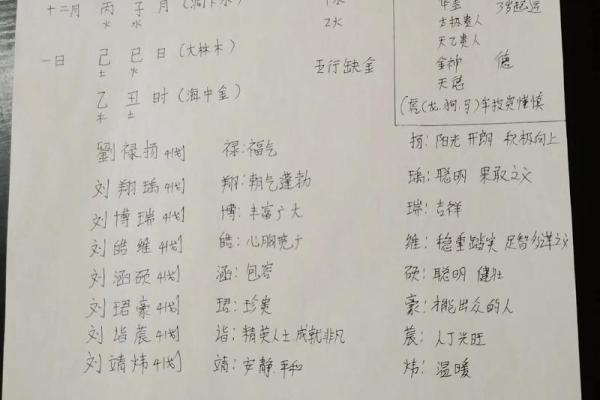 十二月 丙子月(涧下水) 水
火 水 2火
一日 己巳日(大林木) 五行缺金
土 火
乙丑时(海中金)
木 土
华盖 3岁起运
太极贵人
天乙贵人
金神 德
天
劉禄扬 4划 禄:福气 扬:阳光 开朗 积极向上
刘翔瑀 4划 翔:朝气蓬勃 瑀:聪明 果取之义
刘博瑞 4划 博:丰富广大 瑞:吉祥
刘皓维 4划 皓:心胸宽广 维:稳重踏实 足智多谋之义
刘涵硕 4划 涵:包容 硕:聪明 健壮
刘珺豪 4划 珺:珍贵 豪:才能出众的人
刘诣晨 4划 诣:精英人士,成就非凡 晨:人丁兴旺
刘靖炜 4划 靖:安静,平和 炜:温暖